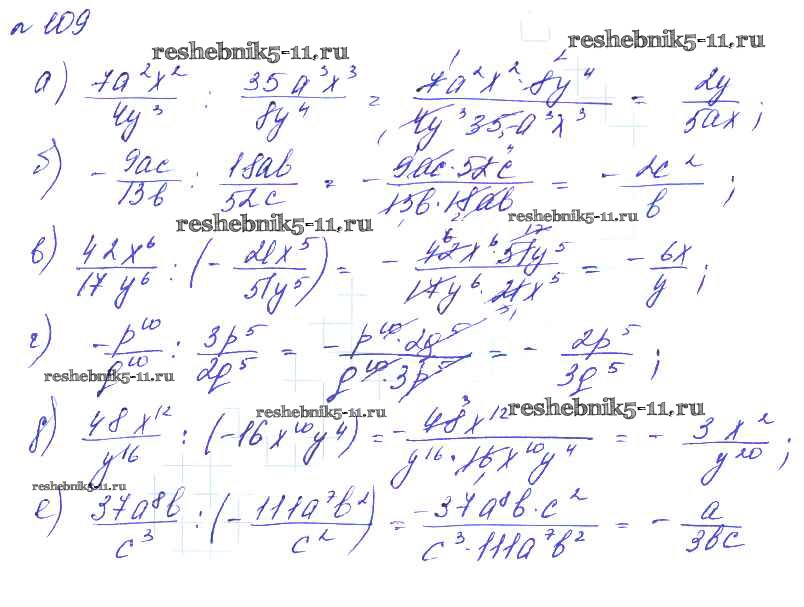 № 109
reshebnik5-11.ru reshebnik5-11.ru
а) 7a²x²/4y³ : 35a³x³/8y⁴ = 7a²x²·8y⁴/4y³35a³x³ = 2y/5ax;
б) -9ac/13b : 18ab/52c = -9ac·52c/13b·18ab = -2c²/b;
reshebnik5-11.ru reshebnik5-11.ru
в) 42x⁶/17y⁶ : (-21x⁵/51y⁵) = -42x⁶·51y⁵/17y⁶·21x⁵ = -6x/y;
г) -p¹⁰/q¹⁰ : 3p⁵/2q⁵ = -p¹⁰·2q⁵/q¹⁰·3p⁵ = -2p⁵/3q⁵;
reshebnik5-11.ru
reshebnik5-11.ru reshebnik5-11.ru
д) 48x¹²/y¹⁶ : (-16x¹⁰y4) = -48x¹²/y¹⁶·16x¹⁰y⁴ = -3x²/y²⁰;
reshebnik5-11.ru
е) 37a⁸b/c³ : (-111a⁷b²/c²) = -37a⁸b·c²/c³·111a⁷b² = -a/3bc